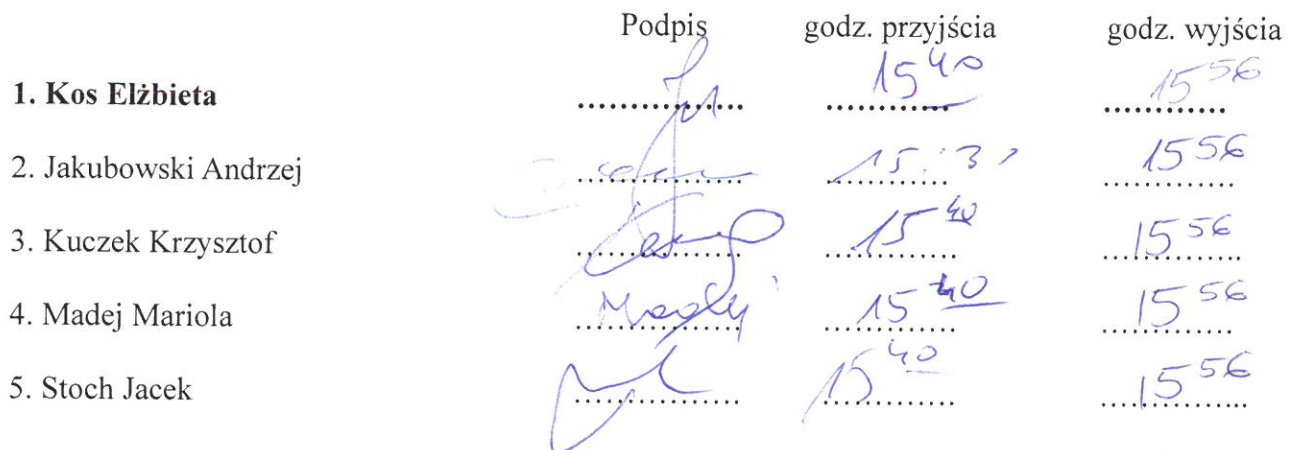 Podpis godz. przyjścia godz. wyjścia
1. Kos Elżbieta .................. 15 40 15 56
2. Jakubowski Andrzej .................. 15 56
3. Kuczek Krzysztof .................. 15 40 15 56
4. Madej Mariola Madej 15 40 15 56
5. Stoch Jacek .................. 15 40 15 56